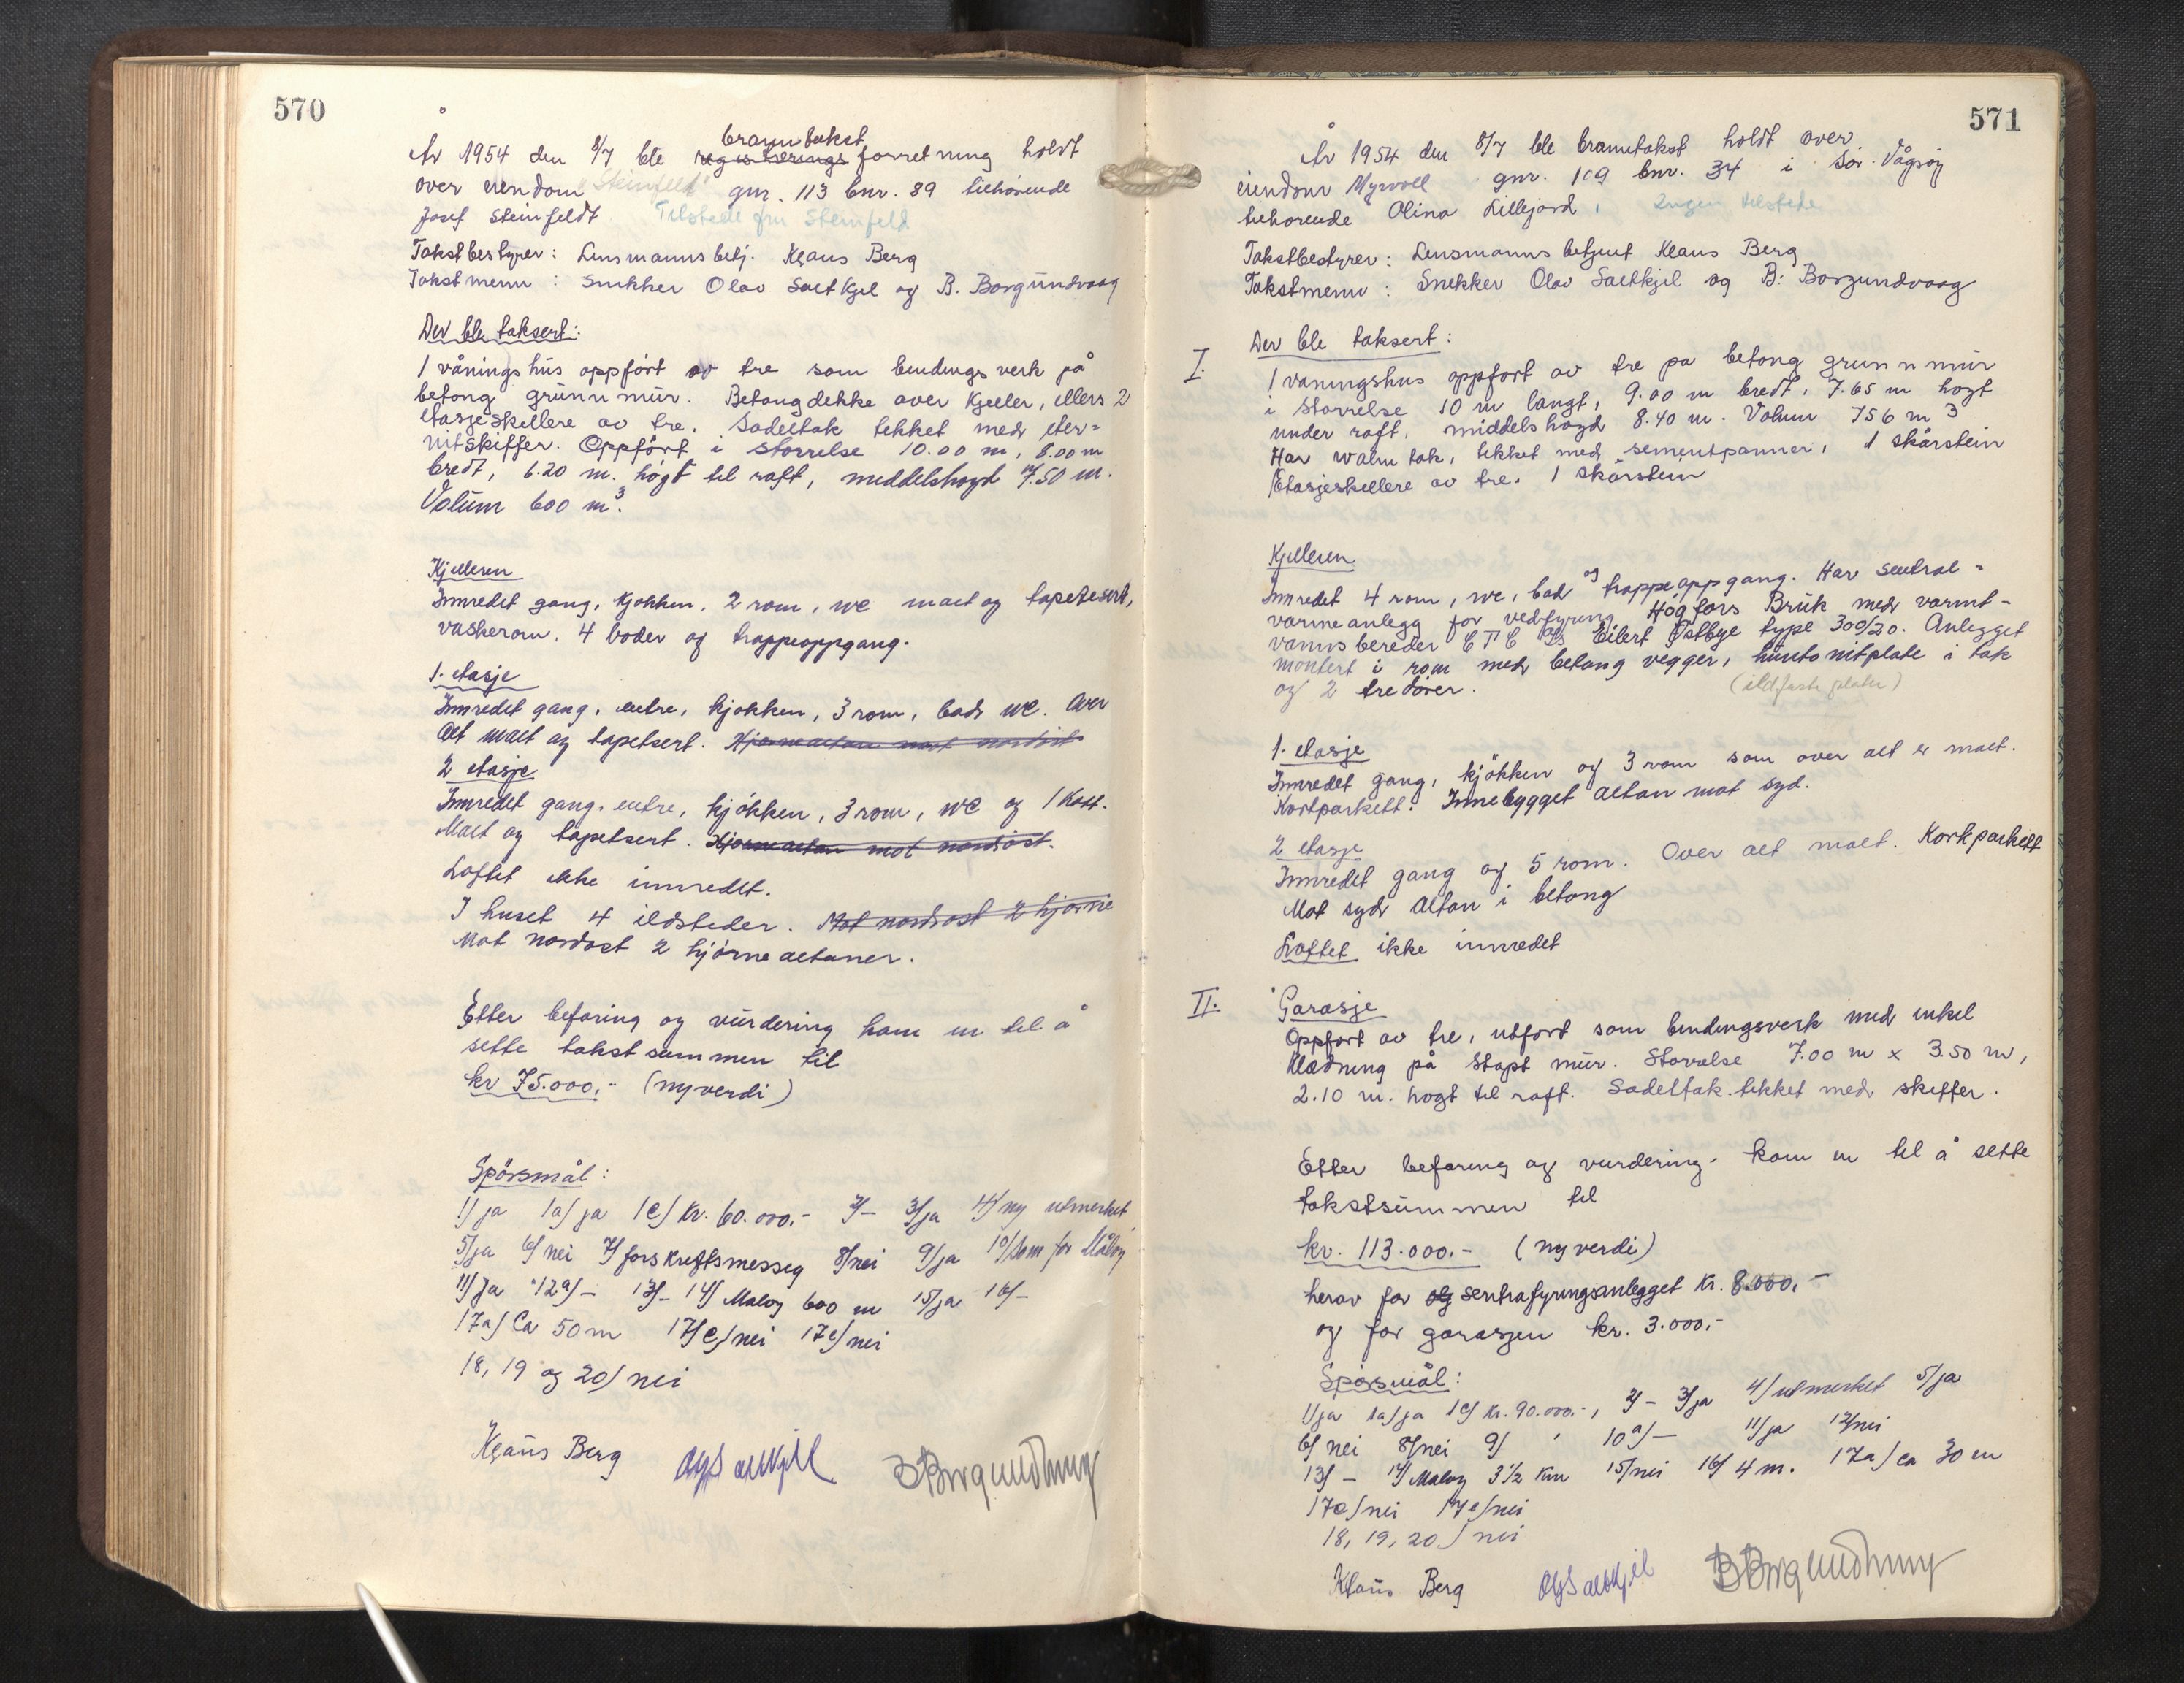 570
År 1954 den 8/7 ble registrerings branntakst forretning holdt
over eiendom "Steinfelt" gnr. 113 bnr. 89 tilhørende
Josef Steinfeldt. Tilstede fru Steinfeld
Takstbestyrer: Lensmannsbetj. Klaus Berg
Takstmenn: Snikker Olav Saltkjel og B. Borgundvaag
Der ble taksert:
1 våningshus oppført av tre som bindingsverk på
betong grunnmur. Betongdekke over kjeller, ellers 2
etasjeskillere av tre. Sadeltak tekket med eter=
nitskiffer. Oppført i størrelse 10.00 m, 8.00 m
bredt, 6.20 m. högt til raft, middelshøyd 7.50 m.
Volum 600 m³.
Kjelleren
Innredet gang, kjøkken, 2 rom, wc malt og tapetsert,
vaskerom, 4 boder og trappeoppgang.
1. etasje
Innredet gang, entre, kjøkken, 3 rom, bad, wc. Over
alt malt og tapetsert. Hjørnealtan mot nordøst
2 etasje
Innredet gang, entre, kjøkken, 3 rom, wc og 1 kott.
Malt og tapetsert. Hjørnealtan mot nordøst.
Loftet ikke innredet.
I huset 4 ildsteder. Mot nordøst 2 hjørne
Mot nordøst 2 hjørnealtaner.
Etter befaring og vurdering kom en til å
sette takstsummen til
kr 75.000,- (nyverdi)
Spörsmål:
1/ ja 1a/ ja 1c/ kr. 60.000.- 2/- 3/ja 4/ ny utmerket
5/ja 6/ nei 7/ forskriftsmessig 8/nei 9/ja 10/som for Måløy
11/ Ja 12a/- 13/- 14/ Måløy 600 m 15/ja 16/-
17a/ Ca 50 m 17c/nei 17e/ nei
18, 19 og 20/ nei
Klaus Berg O Saltkjel B Borgundvaag
571
År 1954 den 8/7 ble branntakst holdt over
eiendom Myrvoll gnr. 109 bnr. 34 i Sør-Vågsøy
tilhørende Olina Lillejord, Ingen tilstede
Takstbestyrer: Lensmannsbetjent Klaus Berg
Takstmenn: Snekker Olav Saltkjel og B. Borgundvaag
Der ble taksert:
I. 1 våningshus oppført av tre på betong grunnmur
i størrelse 10 m langt, 9.00 m bredt, 7.65 m högt
under raft, middelshøyd 8.40 m. Volum 756 m³
Har valmtak, tekket med sementpanner, 1 skårstein
Etasjeskillere av tre. 1 skårstein
Kjelleren
Innredet 4 rom, wc, bad og trappeoppgang. Har sentral=
varmeanlegg for vedfyring, Högfors Bruk med varmt-
vannsbereder CTC A/S Eilert Østbye type 300/20. Anlegget
montert i rom med betong vegger, huntonitplate i tak
og 2 tredører. (ildfaste plater)
1. etasje
Innredet gang, kjökken og 3 rom som over alt er malt.
Korkparkett. Innebygget altan mot syd.
2 etasje
Innredet gang og 5 rom. Over alt malt. Korkparkett
Mot syd altan i betong
Loftet ikke innredet
II. Garasje
Oppført av tre, utført som bindingsverk med enkel
kledning på støpt mur. Størrelse 7.00 m x 3.50 m,
2.10 m. høgt til raft. Sadeltak tekket med skiffer.
Etter befaring og vurdering kom en til å sette
takstsummen til
kr. 113.000.- (nyverdi)
herav for og sentrafyringsanlegget kr. 8.000.-
og for garasjen kr. 3.000.-
Spørsmål:
1/ja 1a/ja 1c/ kr. 90.000.-, 2/- 3/ja 4/ utmerket 5/ja
6/ nei 8/nei 9/ 10a/- 11/ja 12/nei
13/- 14/ Måløy 3 1/2 km 15/nei 16/ 4 m. 17a/ ca 30 m
17c/ nei 17e/nei
18, 19, 20/ nei
Klaus Berg O Saltkjel B Borgundvaag